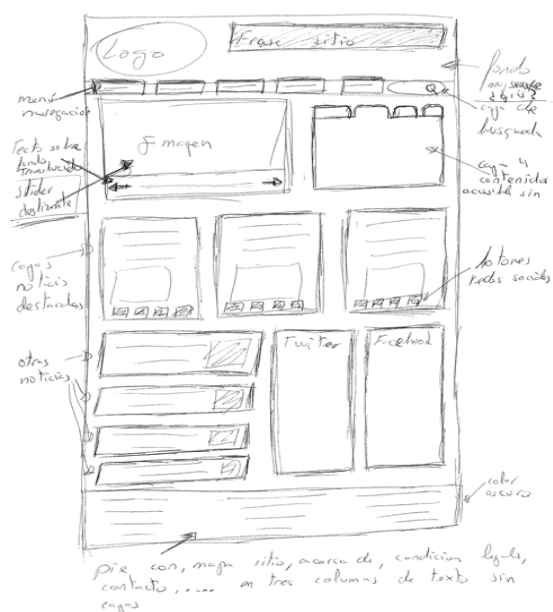 Logo
Frase sitio
fondo
muy suave
menú
navegación
caja de
Imagen
Texto sobre
fondo
translucido
slider
deslizante
caja 4
contenidos
sin
cajas
noticis
destacadas
botones
redes sociales
otras
noticias
Twitter
Facebook
color
oscuro
pie con, mapa sitio, acerca de, condicion
contacto, ..... en tres columnas de texto sin
cajas